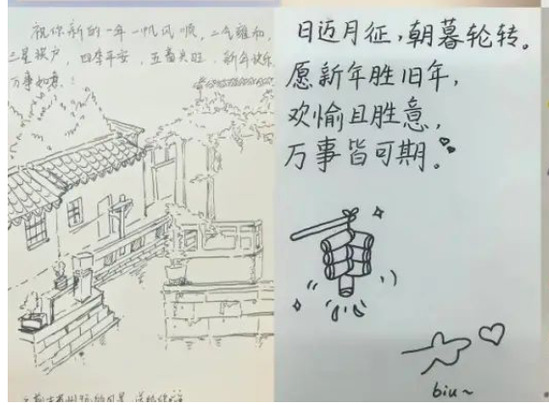 祝你新的一年一帆风顺，二气雍和，
三星投户，四季平安，五音
新年快乐
万事如意！
日迈月征，朝暮轮转。
愿新年胜旧年，
欢愉且胜意，
万事皆可期。
biu~